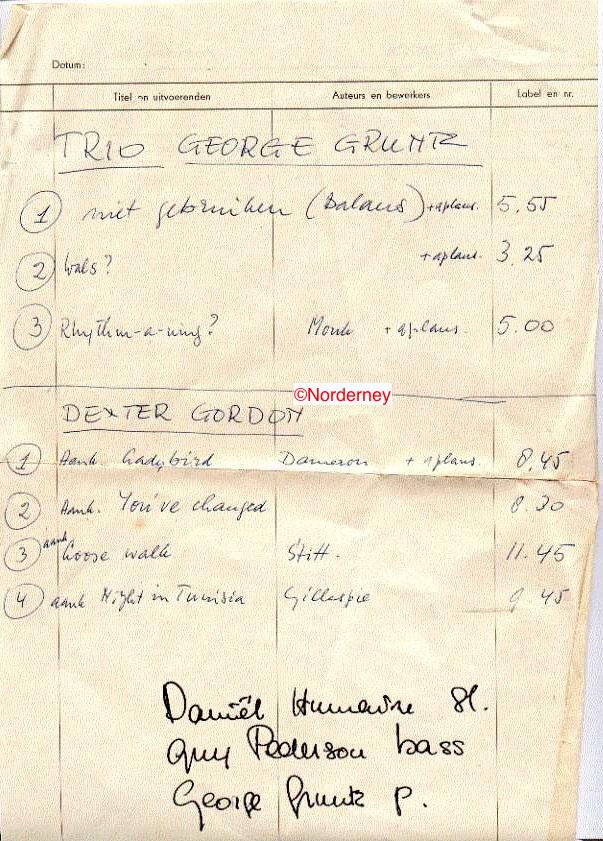 Datum:
Titel en uitvoerenden Auteurs en bewerkers Label en nr.
TRIO GEORGE GRUNTZ
1 niet gebruiken (Balans) + aplaus. 5.55
2 Wals? + aplaus. 3.25
3 Rhythm-a-ning? Monk + aplaus. 5.00
©Norderney
DEXTER GORDON
1 Aank. Ladybird Dameron + aplaus. 8.45
2 Aank. You've changed 8.30
3 aank Loose walk Stitt. 11.45
4 aank Night in Tunisia Gillespie 9.45
Daniël Humair Sl.
Guy Pederson bass
George Gruntz p.